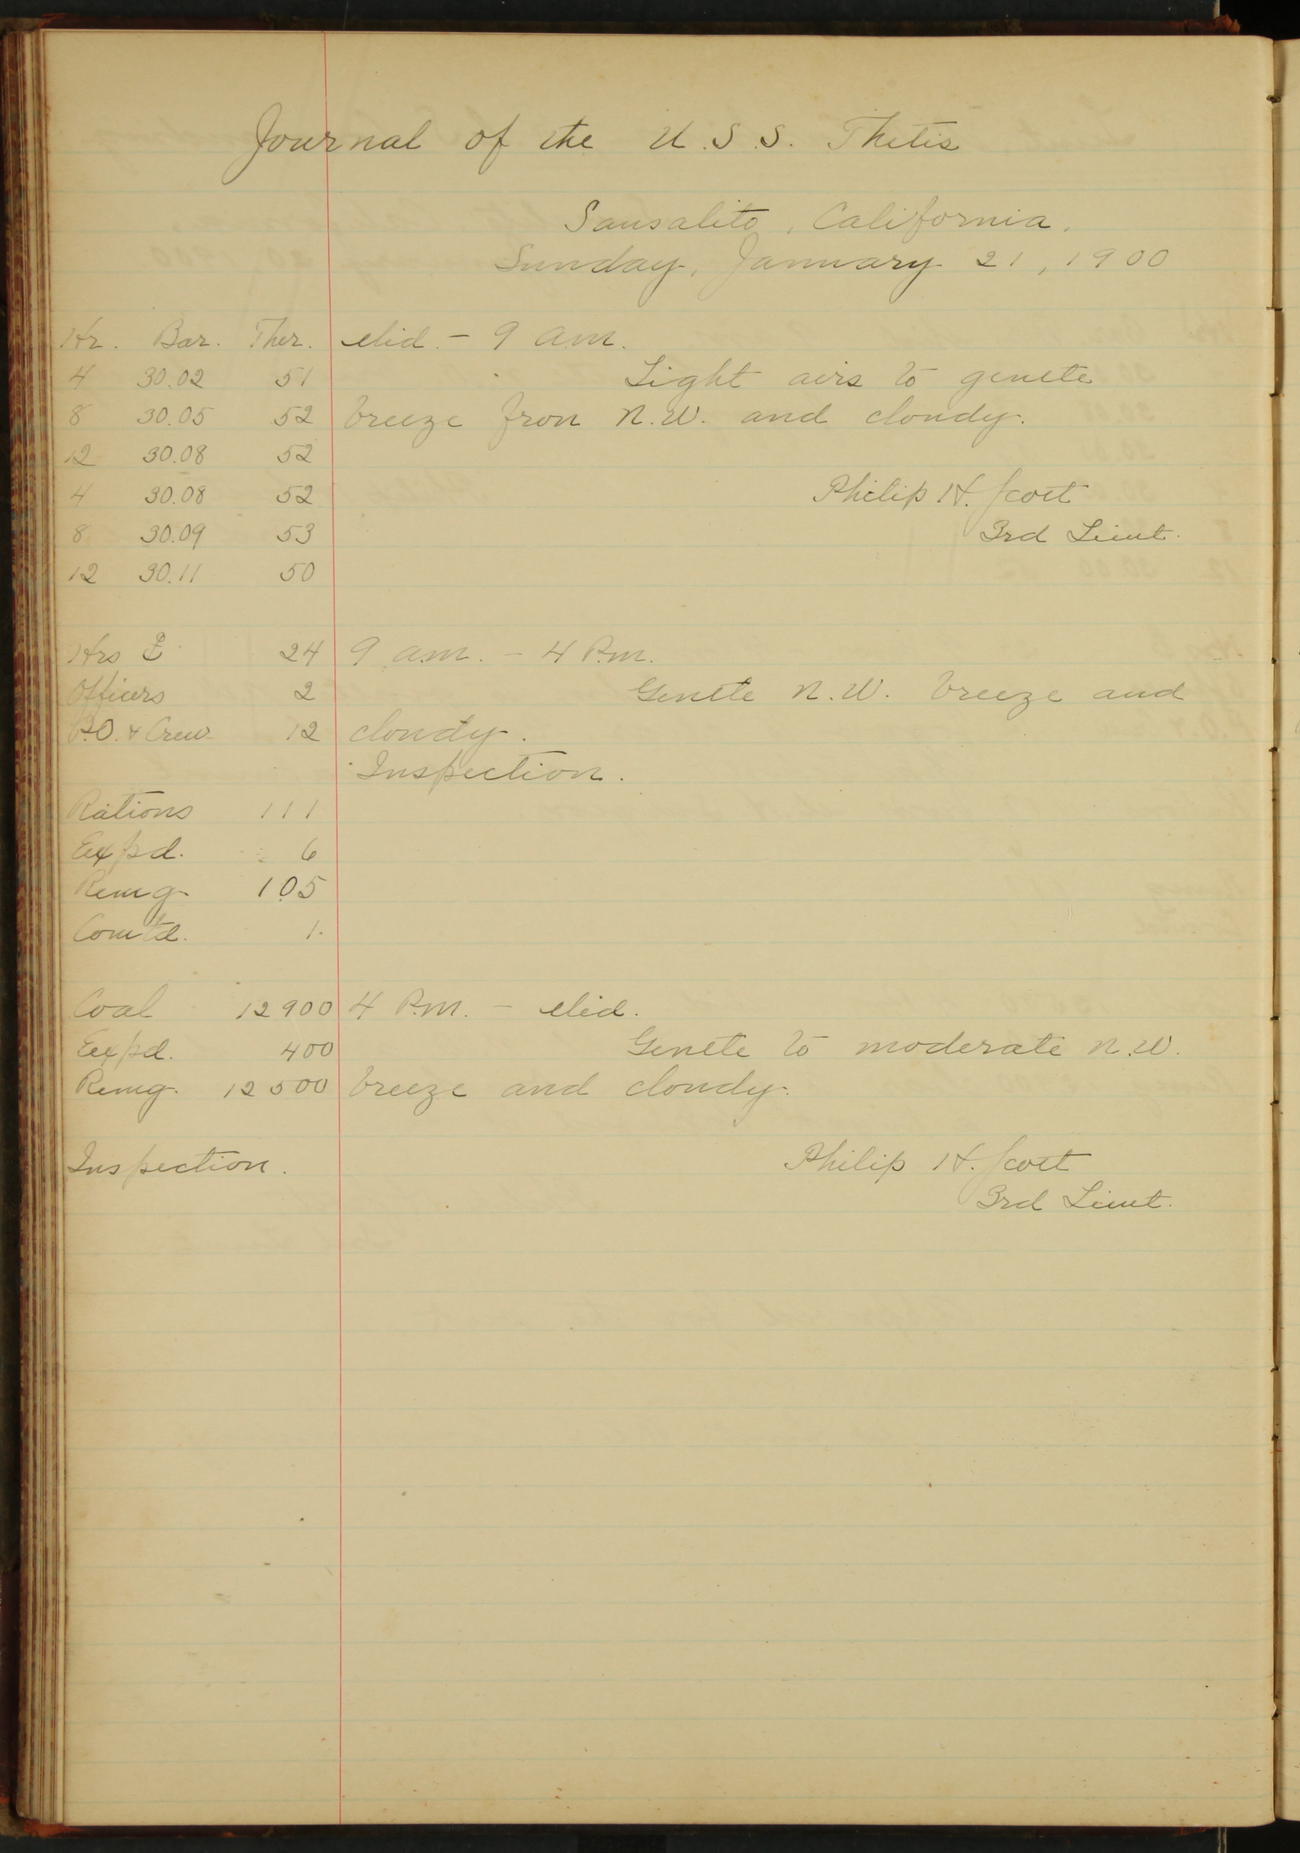 Journal of the U.S.S. Thetis
Sausalito, California.
Sunday, January 21, 1900
Hr. Bar. Ther. Mid. - 9 a.m.
4 30.02 51 Light airs to gentle
8 30.05 52 breeze from N.W. and cloudy.
12 30.08 52
4 30.08 52 Philip H. Scott
8 30.09 53 3rd Lieut.
12 30.11 50
Hrs 24 9 a.m. - 4 P.m.
Officers 2 Gentle N.W. breeze and
P.O. & Crew 12 cloudy.
Inspection.
Rations 111
Expd. 6
Remg. 105
Comtd. 1.
Coal 12900 4 P.m. - Mid.
Expd. 400 Gentle to moderate N.W.
Remg. 12500 breeze and cloudy.
Inspection. Philip H. Scott
3rd Lieut.